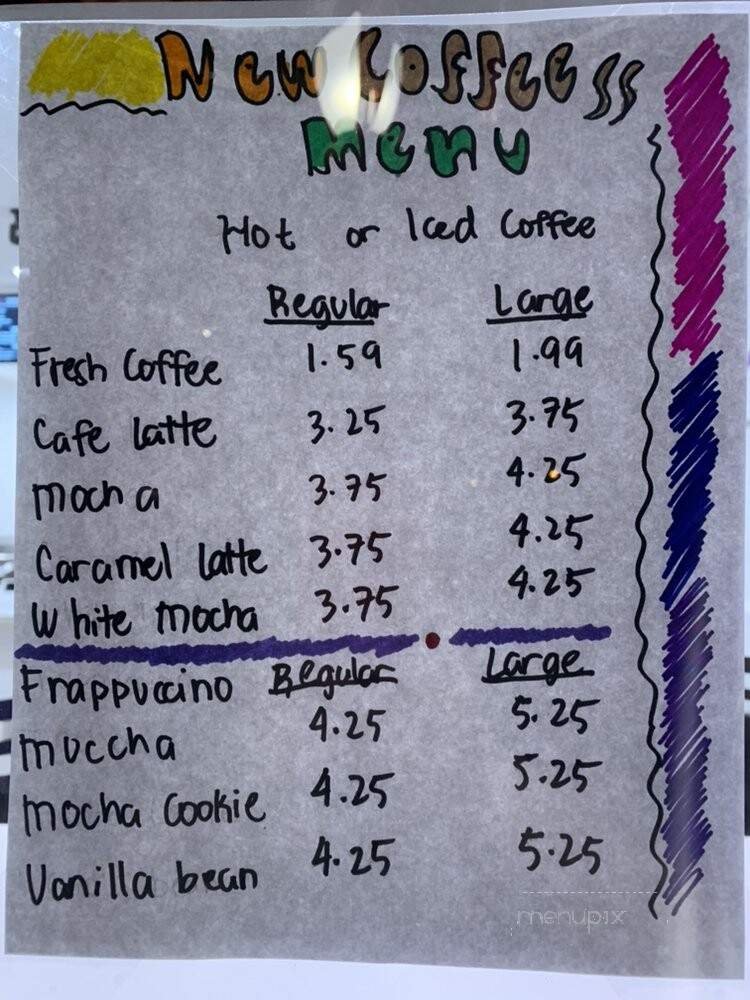 New Coffeess
Menu
Hot or Iced Coffee
Regular Large
Fresh Coffee 1.59 1.99
Cafe latte 3.25 3.75
mocha 3.75 4.25
Caramel latte 3.75 4.25
White mocha 3.75 4.25
Frappuccino Regular Large
muccha 4.25 5.25
mocha Cookie 4.25 5.25
Vanilla bean 4.25 5.25
menupix